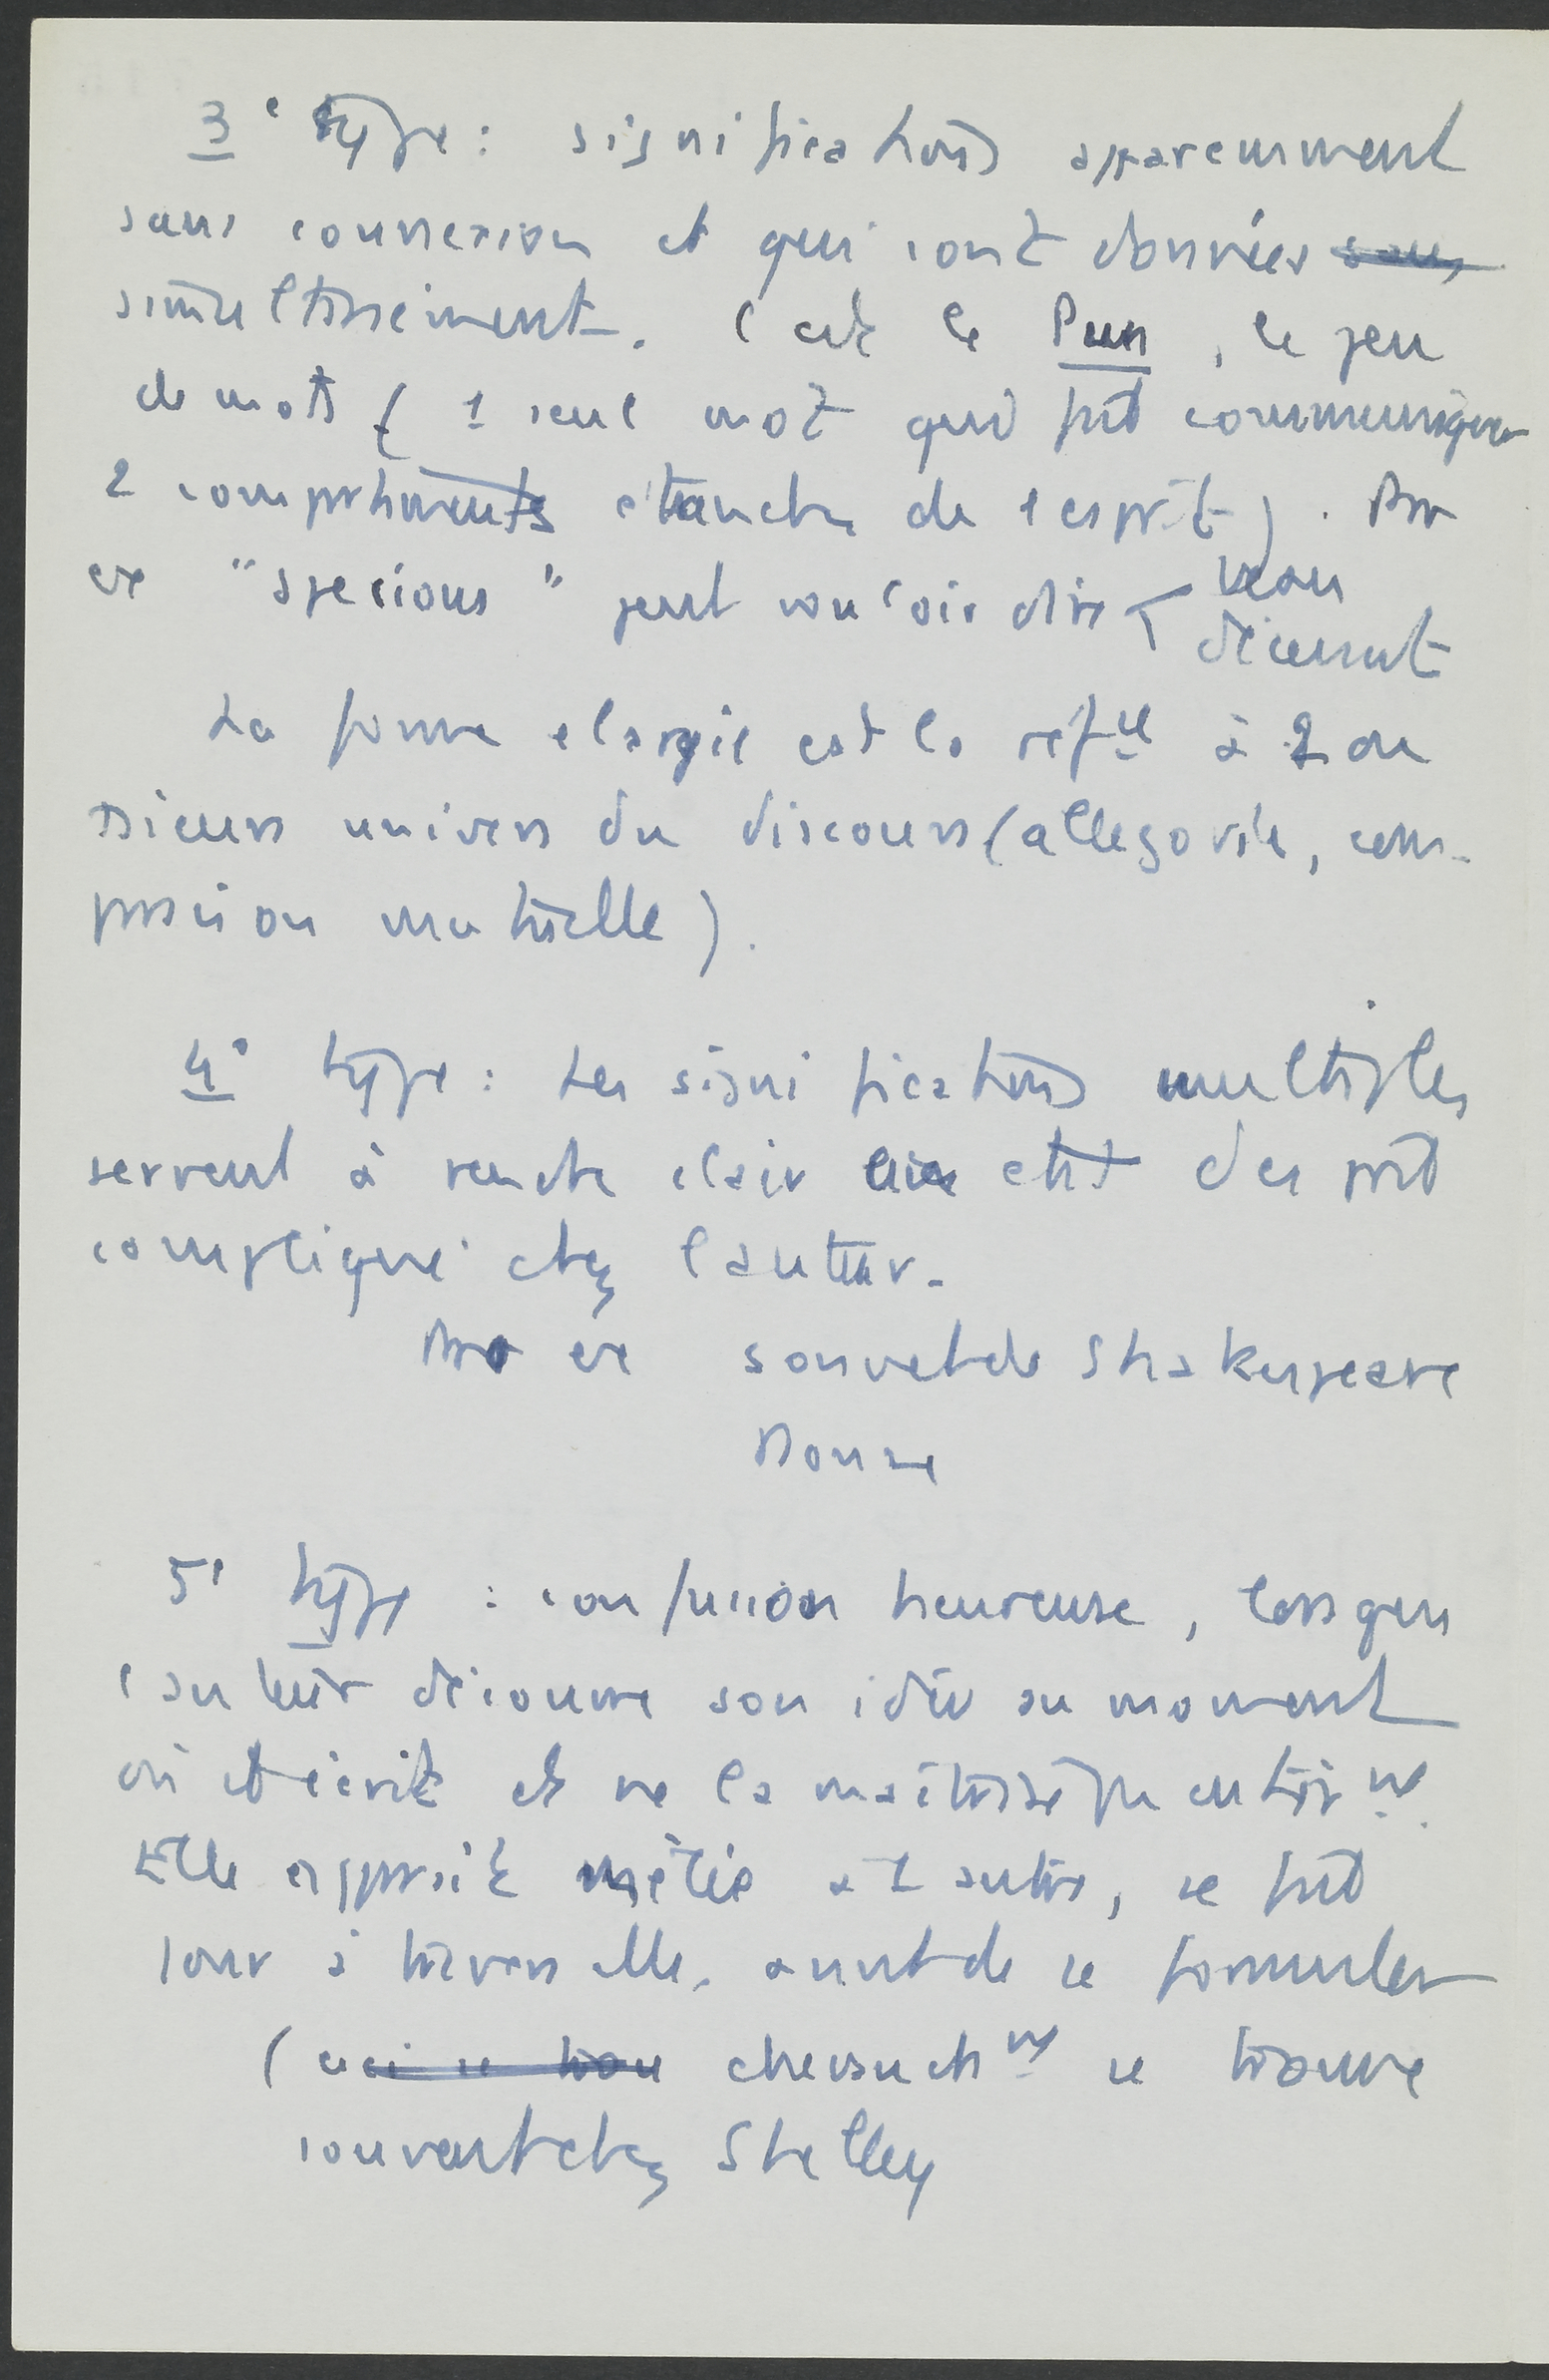 3e type : significations apparemment
sans connexion et qui sont données sous
simultanément. C'est le Pun, le jeu
de mots (1 seul mot qui fait communiquer
2 compartiments étanches de l'esprit). Par
ex "specious" peut vouloir dire beau
décevant
La forme élargie est la réfce à 2 ou
plusieurs univers du discours (allégorie, com-
paraison mutuelle).
4e type : Les significations multiples
servent à rendre clair état d'esprit
compliqué chez l'auteur.
Par ex sonnet de Shakespeare
Donne
5e type : confusion heureuse, lorsque
l'auteur découvre son idée au moment
où il écrit et ne la maîtrise pas entièrnt.
Elle apparaît mêlée à 1 autre, se fait
jour à travers elle, avant de se formuler
(ceci se trou cheveauchnt se trouve
souvent chez Shelley